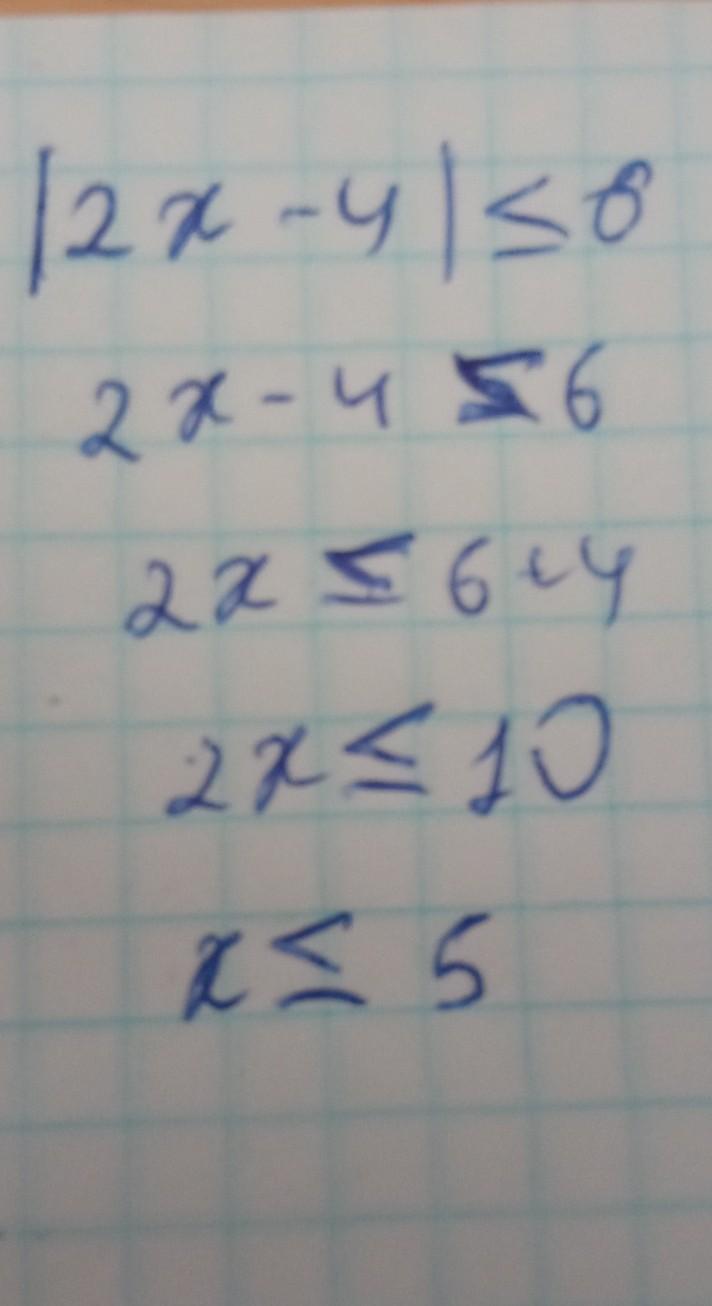 |2x-4|≤6
2x-4≤6
2x≤6+4
2x≤10
x≤5